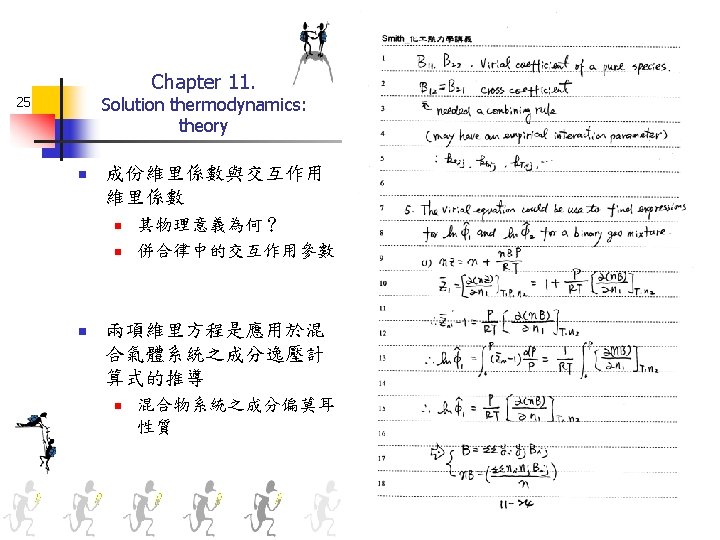 Chapter 11.
25
Solution thermodynamics:
theory
成份維里係數與交互作用
維里係數
其物理意義為何？
併合律中的交互作用參數
兩項維里方程是應用於混
合氣體系統之成分逸壓計
算式的推導
混合物系統之成分偏莫耳
性質
Smith 化工熱力學講義
1 B₁₁, B₂₂ . Virial coefficient of a pure species.
2 B₁₂ = B₂₁ cross coefficient
3 needed a combining rule
4 (may have an empirical interaction parameter)
5 : kᵢⱼ,
6
7 5. The virial equation could be use to find expressions
8 for ln φ̂₁ and ln φ̂₂ for a binary gas mixture.
9 (1) nZ = n + nBP/RT
10 Z̄₁ = [∂(nZ)/∂n₁]T,P,n₂ = 1 + P/RT [∂(nB)/∂n₁]T,n₂
11
12 ∴ Z̄₁ - 1 = P/RT [∂(nB)/∂n₁]T,n₂
13 ∴ ln φ̂₁ = ∫₀ᴾ (Z̄₁ - 1) dP/P = 1/RT ∫₀ᴾ [∂(nB)/∂n₁]T,n₂ dP
14
15 ∴ ln φ̂₁ = P/RT [∂(nB)/∂n₁]T,n₂
16
17 B = ΣΣ yᵢ yⱼ Bᵢⱼ
18 nB = (ΣΣ nᵢ nⱼ Bᵢⱼ)/n
11-24